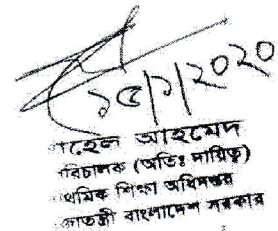 ১৫/১/২০২০
হেল আহমেদ
রিচালক (অতিঃ দায়িত্ব)
থমিক শিক্ষা অধিদপ্তর
জাতন্ত্রী বাংলাদেশ সরকার